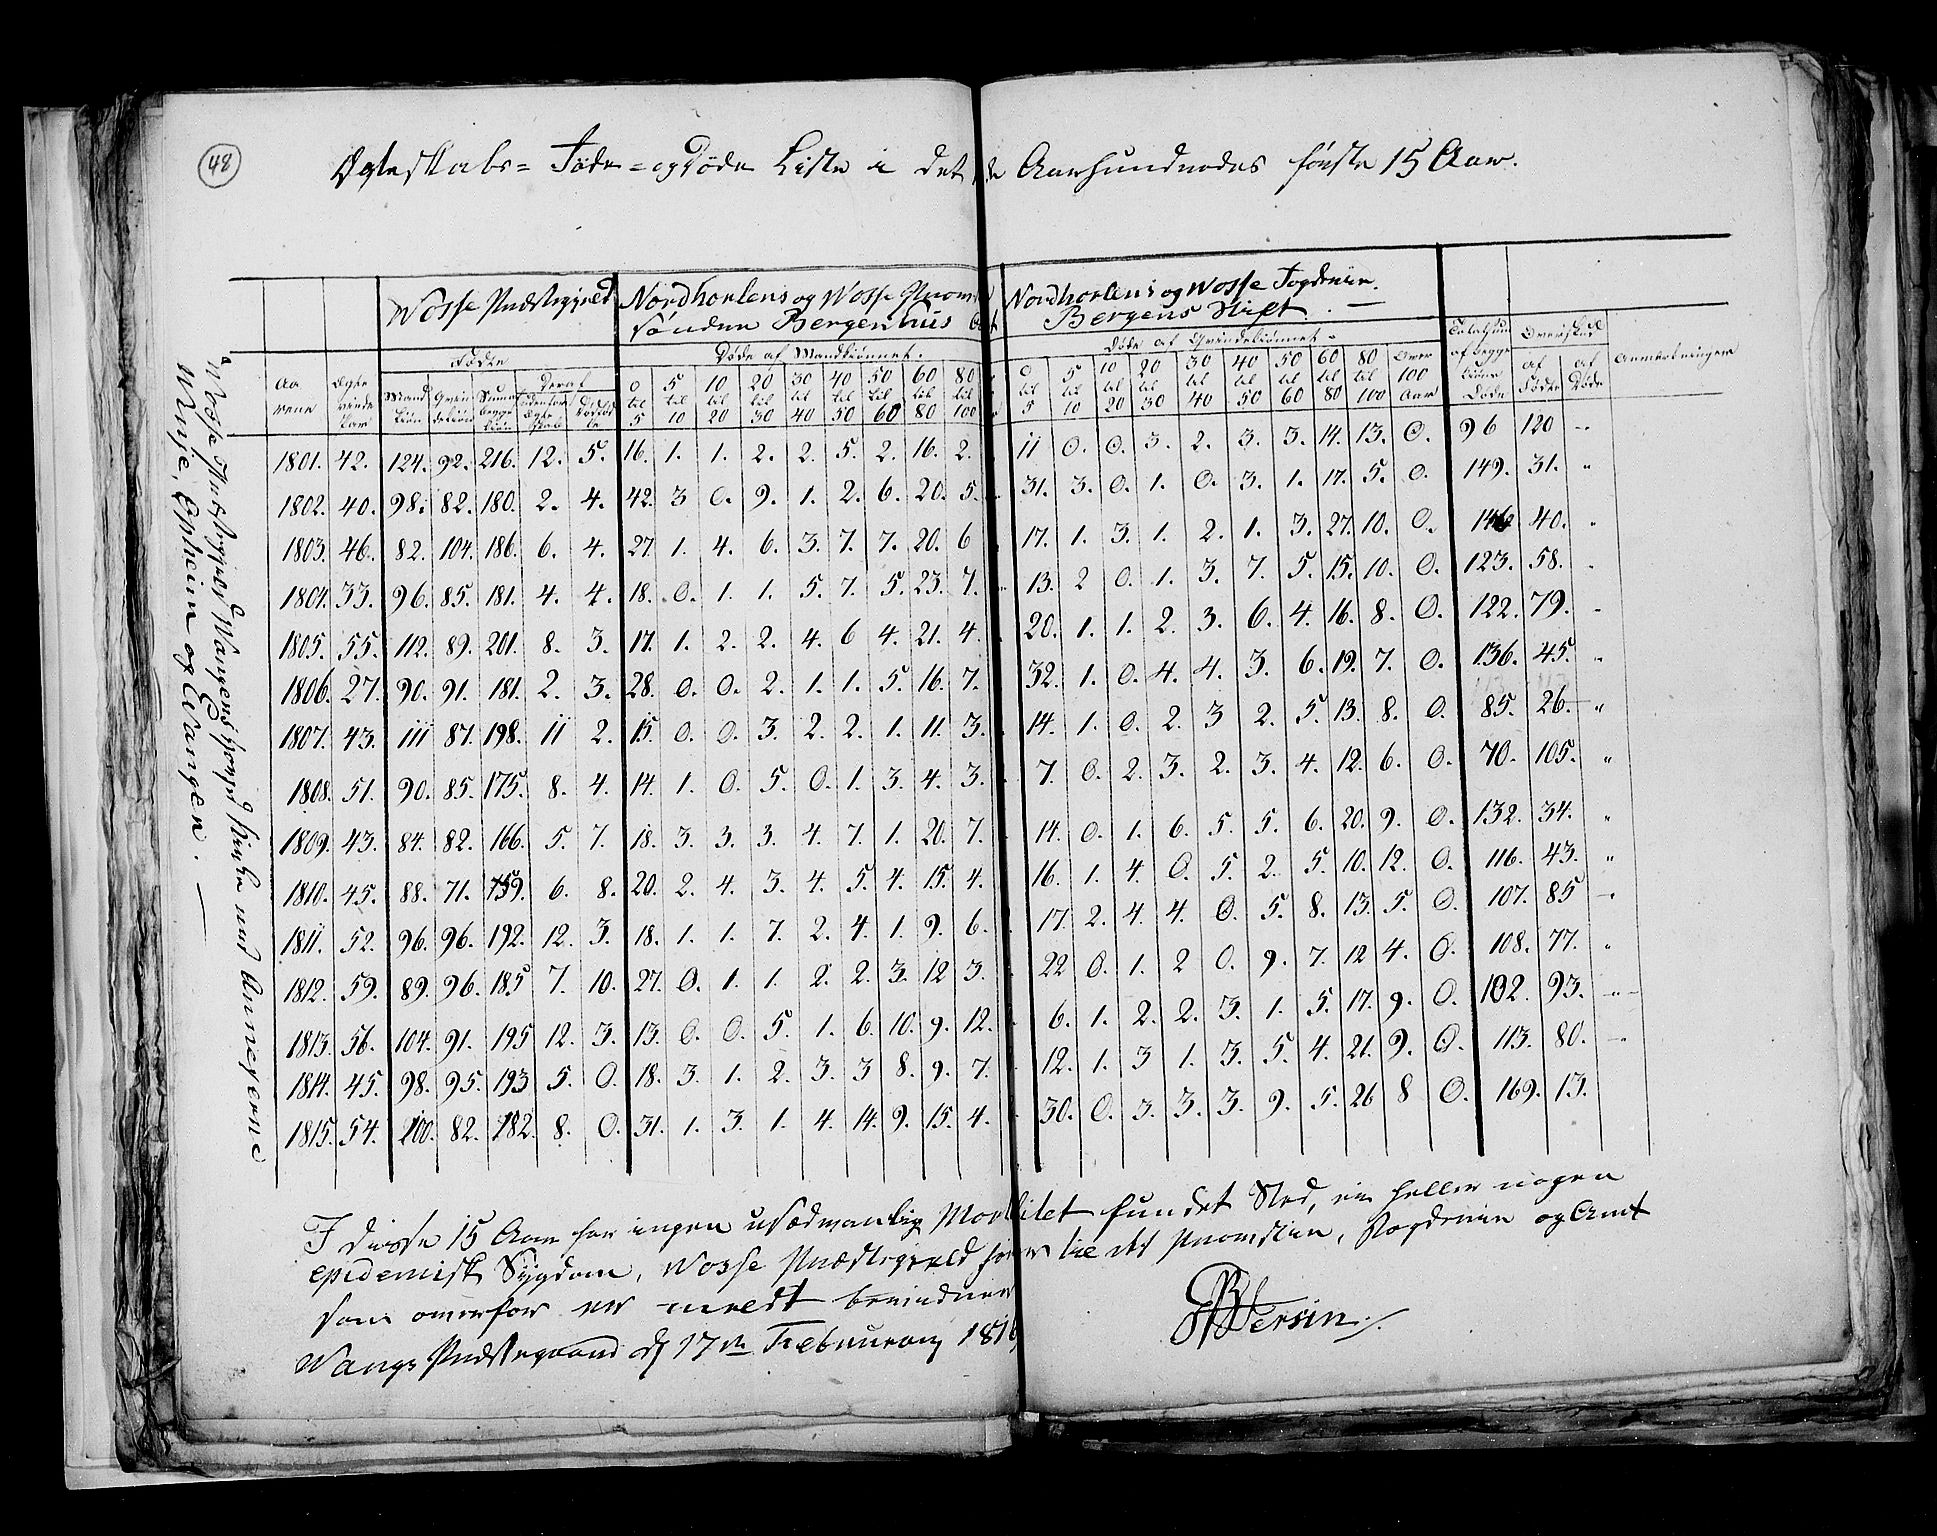 48
Ægteskabs= Føde= og Døde Liste i det Aarhundredes første 15 Aar.
Wosse Præstegjeld Nordhorlens og Wosse Fogderie.
Søndre Bergenhus Bergens Stift.
Fødte Døde af Mandkiønnet. Døde af Qvindekiønnet.
Aarene Ægte viede Par Mandkiøn Qvindekiøn Summa begge Kiøn Deraf Udenfor Ægteskab 0 til 5 5 til 10 10 til 20 20 til 30 30 til 40 40 til 50 50 til 60 60 til 80 80 til 100 0 til 5 5 til 10 10 til 20 20 til 30 30 til 40 40 til 50 50 til 60 60 til 80 80 til 100 Over 100 Aar Totalsum af begge Kiøns Døde Overskud af Fødte af Døde Anmerkninger
1801. 42. 124. 92. 216. 12. 5. 16. 1. 1. 2. 2. 5. 2. 16. 2. 11 0. 0. 3. 2. 3. 3. 14. 13. 0. 96 120 "
1802. 40. 98. 82. 180. 2. 4. 42. 3 0. 9. 1. 2. 6. 20. 5. 31. 3. 0. 1. 0. 3. 1. 17. 5. 0. 149. 31. "
1803. 46. 82. 104. 186. 6. 4. 27. 1. 4. 6. 3. 7. 7. 20. 6 17. 1. 3. 1. 2. 1. 3. 27. 10. 0. 146 40. "
1804. 33. 96. 85. 181. 4. 4. 18. 0. 1. 1. 5. 7. 5. 23. 7. 13. 2 0. 1. 3. 7. 5. 15. 10. 0. 123. 58. "
1805. 55. 112. 89. 201. 8. 3. 17. 1. 2. 2. 4. 6 4. 21. 4. 20. 1. 1. 2. 3. 6. 4. 16. 8. 0. 122. 79. "
1806. 27. 90. 91. 181. 2. 3. 28. 0. 0. 2. 1. 1. 5. 16. 7. 32. 1. 0. 4. 4. 3. 6. 19. 7. 0. 136. 45. "
1807. 43. 111 87. 198. 11 2. 15. 0. 0. 3. 2. 2. 1. 11. 3. 14. 1. 0. 2. 3 2. 5. 13. 8. 0. 85. 26. "
1808. 51. 90. 85. 175. 8. 4. 14. 1. 0. 5. 0. 1. 3. 4. 3. 7. 0. 2. 3. 2. 3. 4. 12. 6. 0. 70. 105. "
1809. 43. 84. 82. 166. 5. 7. 18. 3. 3. 3. 4. 7. 1. 20. 7. 14. 0. 1. 6. 5. 5. 6. 20. 9. 0. 132. 34. "
1810. 45. 88. 71. 159. 6. 8. 20. 2. 4. 3. 4. 5. 4. 15. 4. 16. 1. 4. 0. 5. 2. 5. 10. 12. 0. 116. 43. "
1811. 52. 96. 96. 192. 12. 3. 18. 1. 1. 7. 2. 4. 1. 9. 6. 17. 2. 4. 4. 0. 5. 8. 13. 5. 0. 107. 85 "
1812. 59. 89. 96. 185 7. 10. 27. 0. 1. 1. 2. 2. 3. 12 3. 22 0. 1. 2 0. 9. 7. 12 4. 0. 108. 77. "
1813. 56. 104. 91. 195 12. 3. 13. 0. 0. 5. 1. 6. 10. 9. 12. 6. 1. 2. 2. 3. 1. 5. 17. 9. 0. 102. 93. "
1814. 45. 98. 95. 193 5. 0. 18. 3. 1. 2. 3. 3 8. 9. 7. 12. 1. 3 1. 3. 5. 4. 21. 9. 0. 113. 80. "
1815. 54. 100. 82. 182. 8. 0. 31. 1. 3. 1. 4. 14. 9. 15. 4. 30. 0. 3. 3. 3. 9. 5. 26 8 0. 169. 13.
I disse 15 Aar har ingen usædvanlig fundet Sted, ei heller nogen
epidemisk Sygdom, Wosse Præstegield hører til det Provstie, Fogderie og Amt
som ovenfor er meldt
Wangs Præstegaard d 17de Februarÿ 1816
Wosse Præstegjeld Wangens Hoved Kirke med Annexerne
Winje, Epheim og Evangen.